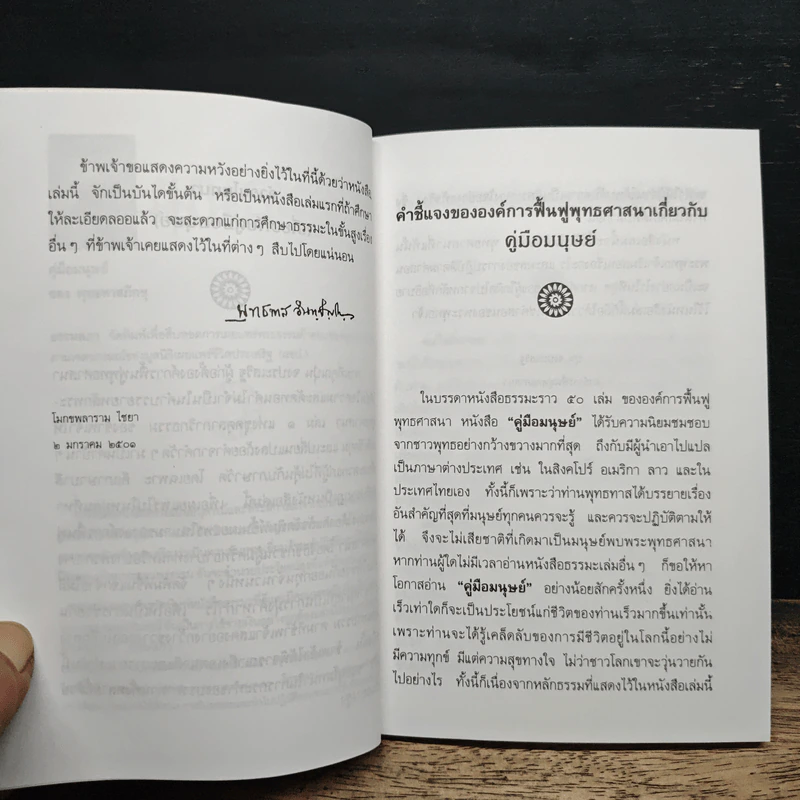 ข้าพเจ้าขอแสดงความหวังอย่างยิ่งไว้ในที่นี้ด้วยว่าหนังสือ
เล่มนี้ จักเป็นบันไดขั้นต้น หรือเป็นหนังสือเล่มแรกที่ถ้าศึกษา
ให้ละเอียดลออแล้ว จะสะดวกแก่การศึกษาธรรมะในขั้นสูงเรื่อง
อื่น ๆ ที่ข้าพเจ้าเคยแสดงไว้ในที่ต่าง ๆ สืบไปโดยแน่นอน
พุทธทาส อินฺทปญฺโญ
โมกขพลาราม ไชยา
๒ มกราคม ๒๕๐๑
คำชี้แจงขององค์การฟื้นฟูพุทธศาสนาเกี่ยวกับ
คู่มือมนุษย์
ในบรรดาหนังสือธรรมะราว ๕๐ เล่ม ขององค์การฟื้นฟู
พุทธศาสนา หนังสือ "คู่มือมนุษย์" ได้รับความนิยมชมชอบ
จากชาวพุทธอย่างกว้างขวางมากที่สุด ถึงกับมีผู้นำเอาไปแปล
เป็นภาษาต่างประเทศ เช่น ในสิงคโปร์ อเมริกา ลาว และใน
ประเทศไทยเอง ทั้งนี้ก็เพราะว่าท่านพุทธทาสได้บรรยายเรื่อง
อันสำคัญที่สุดที่มนุษย์ทุกคนควรจะรู้ และควรจะปฏิบัติตามให้
ได้ จึงจะไม่เสียชาติที่เกิดมาเป็นมนุษย์พบพระพุทธศาสนา
หากท่านผู้ใดไม่มีเวลาอ่านหนังสือธรรมะเล่มอื่น ๆ ก็ขอให้หา
โอกาสอ่าน "คู่มือมนุษย์" อย่างน้อยสักครั้งหนึ่ง ยิ่งได้อ่าน
เร็วเท่าใดก็จะเป็นประโยชน์แก่ชีวิตของท่านเร็วมากขึ้นเท่านั้น
เพราะท่านจะได้รู้เคล็ดลับของการมีชีวิตอยู่ในโลกนี้อย่างไม่
มีความทุกข์ มีแต่ความสุขทางใจ ไม่ว่าชาวโลกเขาจะวุ่นวายกัน
ไปอย่างไร ทั้งนี้ก็เนื่องจากหลักธรรมที่แสดงไว้ในหนังสือเล่มนี้